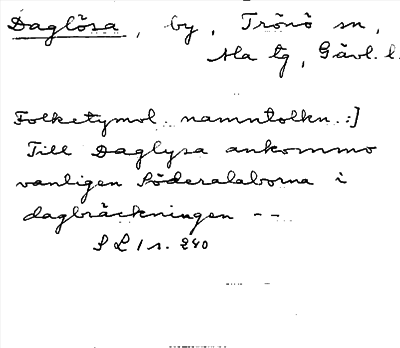 Daglösa, by, Trönö sn,
Ala tg, Gävl. l.
Folketymol. namntolkn.:]
Till Daglysa ankommo
vanligen Söderalaborna i
dagbräckningen --
S L 1 s. 240